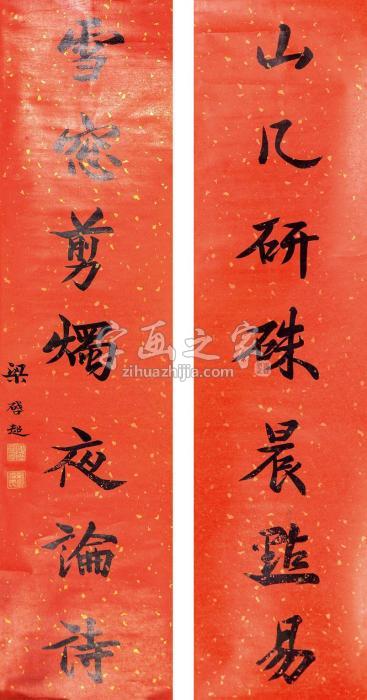 山几研硃晨點易
雪窓剪燭夜論詩
梁啓超
字画之家
zihuazhijia.com